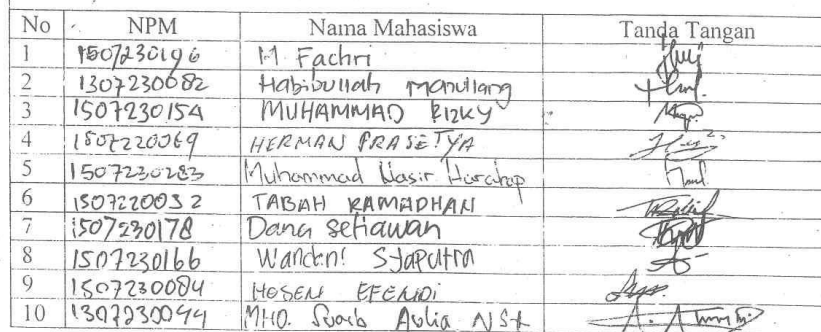 No NPM Nama Mahasiswa Tanda Tangan
1 1507230196 M. Fachri
2 1307230082 Habibullah Manullang
3 1507230154 MUHAMMAD RIZKY
4 1507220069 HERMAN PRASETYA
5 1507230283 Muhammad Nasir Harahap
6 1507220032 TABAH RAMADHAN
7 1507230178 Dana Setiawan
8 1507230166 Wandani Syaputra
9 1507230084 HOSEN EFENDI
10 1307230094 MHD. Suaib Aulia NSt